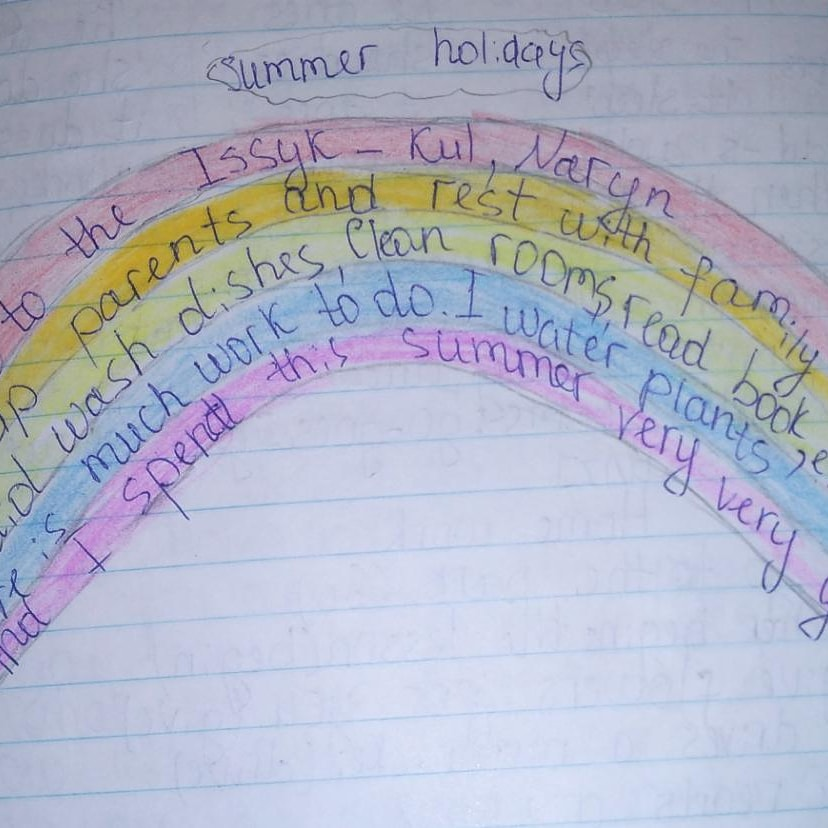 Summer holidays
to the Issyk - Kul, Naryn
parents and rest with family
wash dishes, Clean rooms, read book,
is much work to do. I water plants,
I spend this summer very very